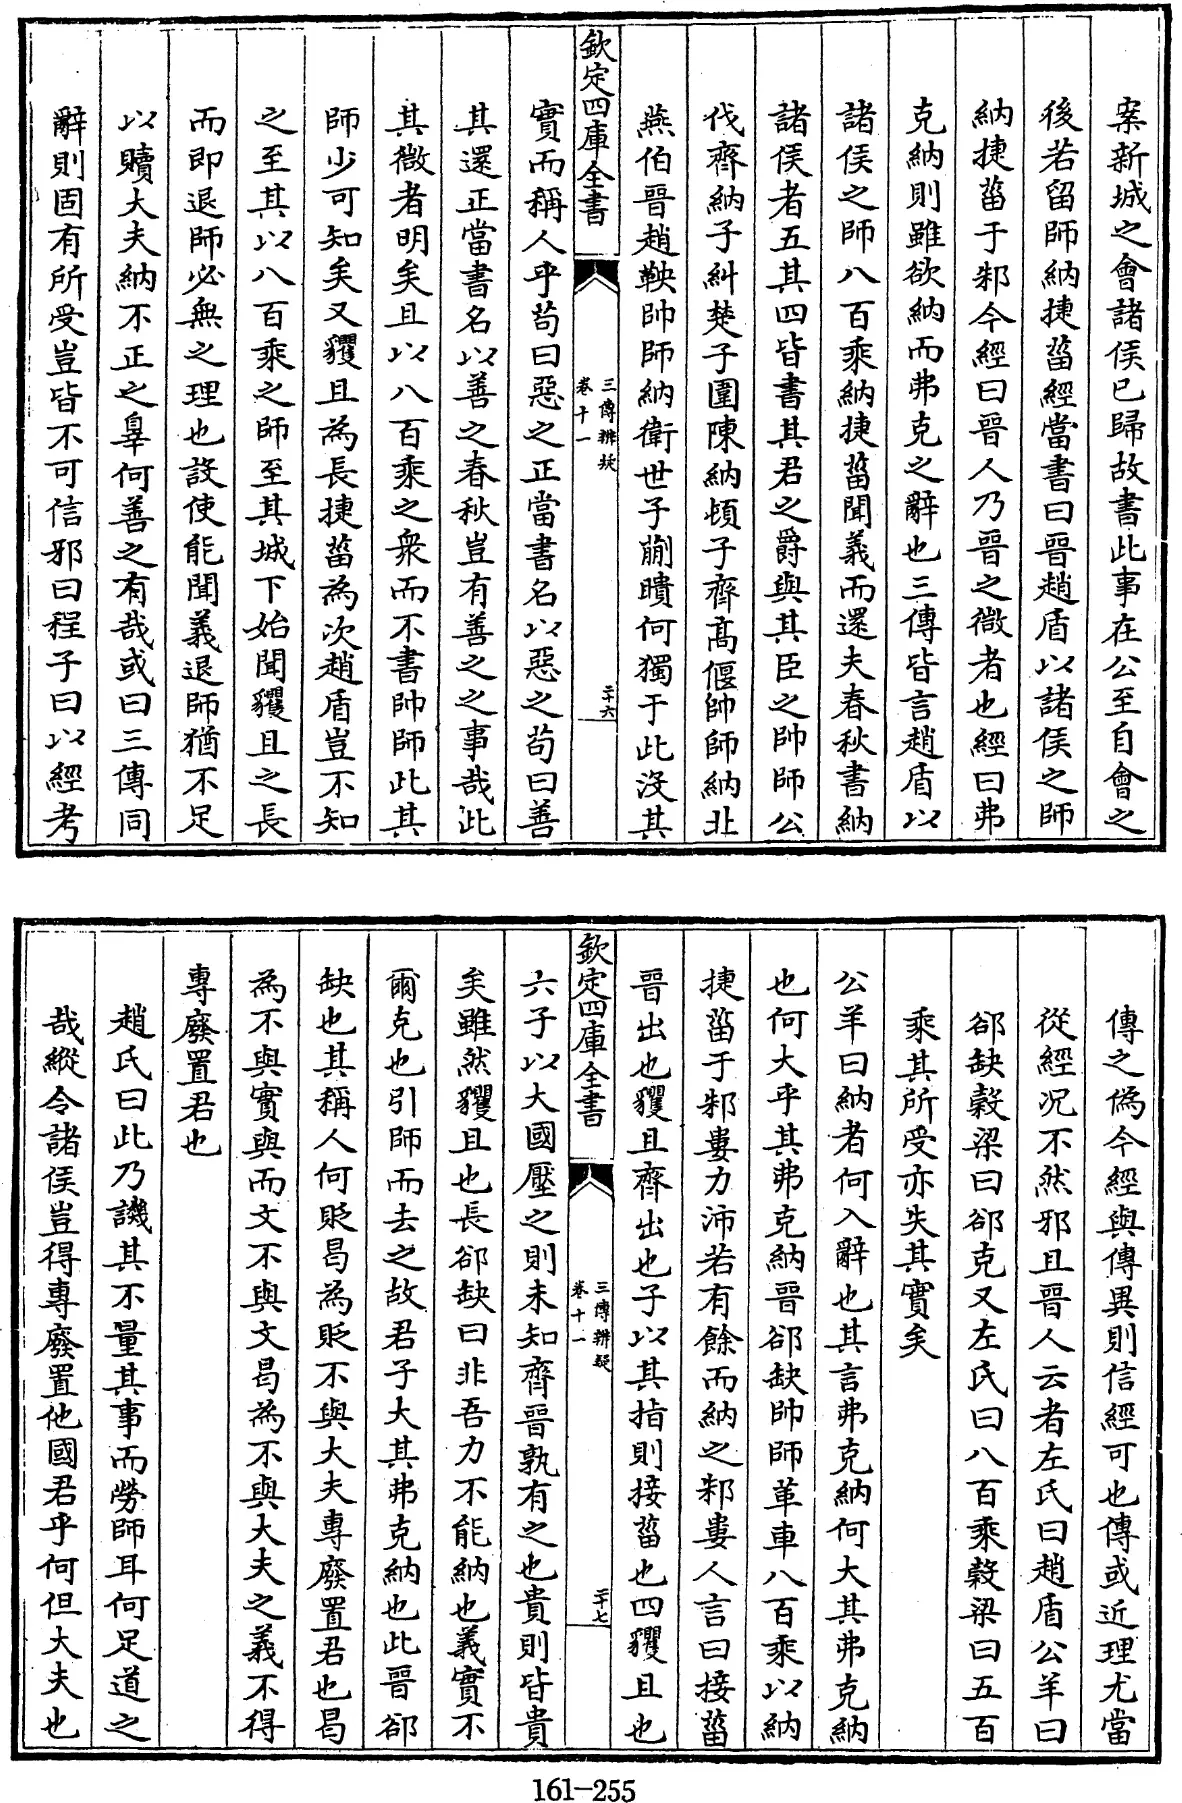 案新城之會諸侯已歸故書此事在公至自會之
後若留師納捷菑經當書曰晉趙盾以諸侯之師
納捷菑于邾今經曰晉人乃晉之微者也經曰弗
克納則雖欲納而弗克之辭也三傳皆言趙盾以
諸侯之師八百乘納捷菑聞義而還夫春秋書納
諸侯者五其四皆書其君之爵與其臣之帥師公
伐齊納子糾楚子圍陳納頓子齊髙偃帥師納北
燕伯晉趙鞅帥師納衛世子蒯聵何獨于此沒其
欽定四庫全書
三傳辨疑
卷十一
二十六
實而稱人乎苟曰惡之正當書名以惡之苟曰善
其還正當書名以善之春秋豈有善之之事哉此
其微者明矣且以八百乘之衆而不書帥師此其
師少可知矣又貜且為長捷菑為次趙盾豈不知
之至其以八百乘之師至其城下始聞貜且之長
而即退師必無之理也設使能聞義退師猶不足
以贖大夫納不正之辠何善之有哉或曰三傳同
辭則固有所受豈皆不可信邪曰程子曰以經考
傳之偽今經與傳異則信經可也傳或近理尤當
從經况不然邪且晉人云者左氏曰趙盾公羊曰
郤缺榖梁曰郤克又左氏曰八百乘榖梁曰五百
乘其所受亦失其實矣
公羊曰納者何入辭也其言弗克納何大其弗克納
也何大乎其弗克納晉郤缺帥師革車八百乘以納
捷菑于邾婁力沛若有餘而納之邾婁人言曰接菑
晉出也貜且齊出也子以其指則接菑也四貜且也
欽定四庫全書
三傳辨疑
卷十一
二十七
六子以大國壓之則未知齊晉孰有之也貴則皆貴
矣雖然貜且也長郤缺曰非吾力不能納也義實不
爾克也引師而去之故君子大其弗克納也此晉郤
缺也其稱人何貶曷為貶不與大夫專廢置君也曷
為不與實與而文不與文曷為不與大夫之義不得
專廢置君也
趙氏曰此乃譏其不量其事而勞師耳何足道之
哉縱令諸侯豈得專廢置他國君乎何但大夫也
161-255